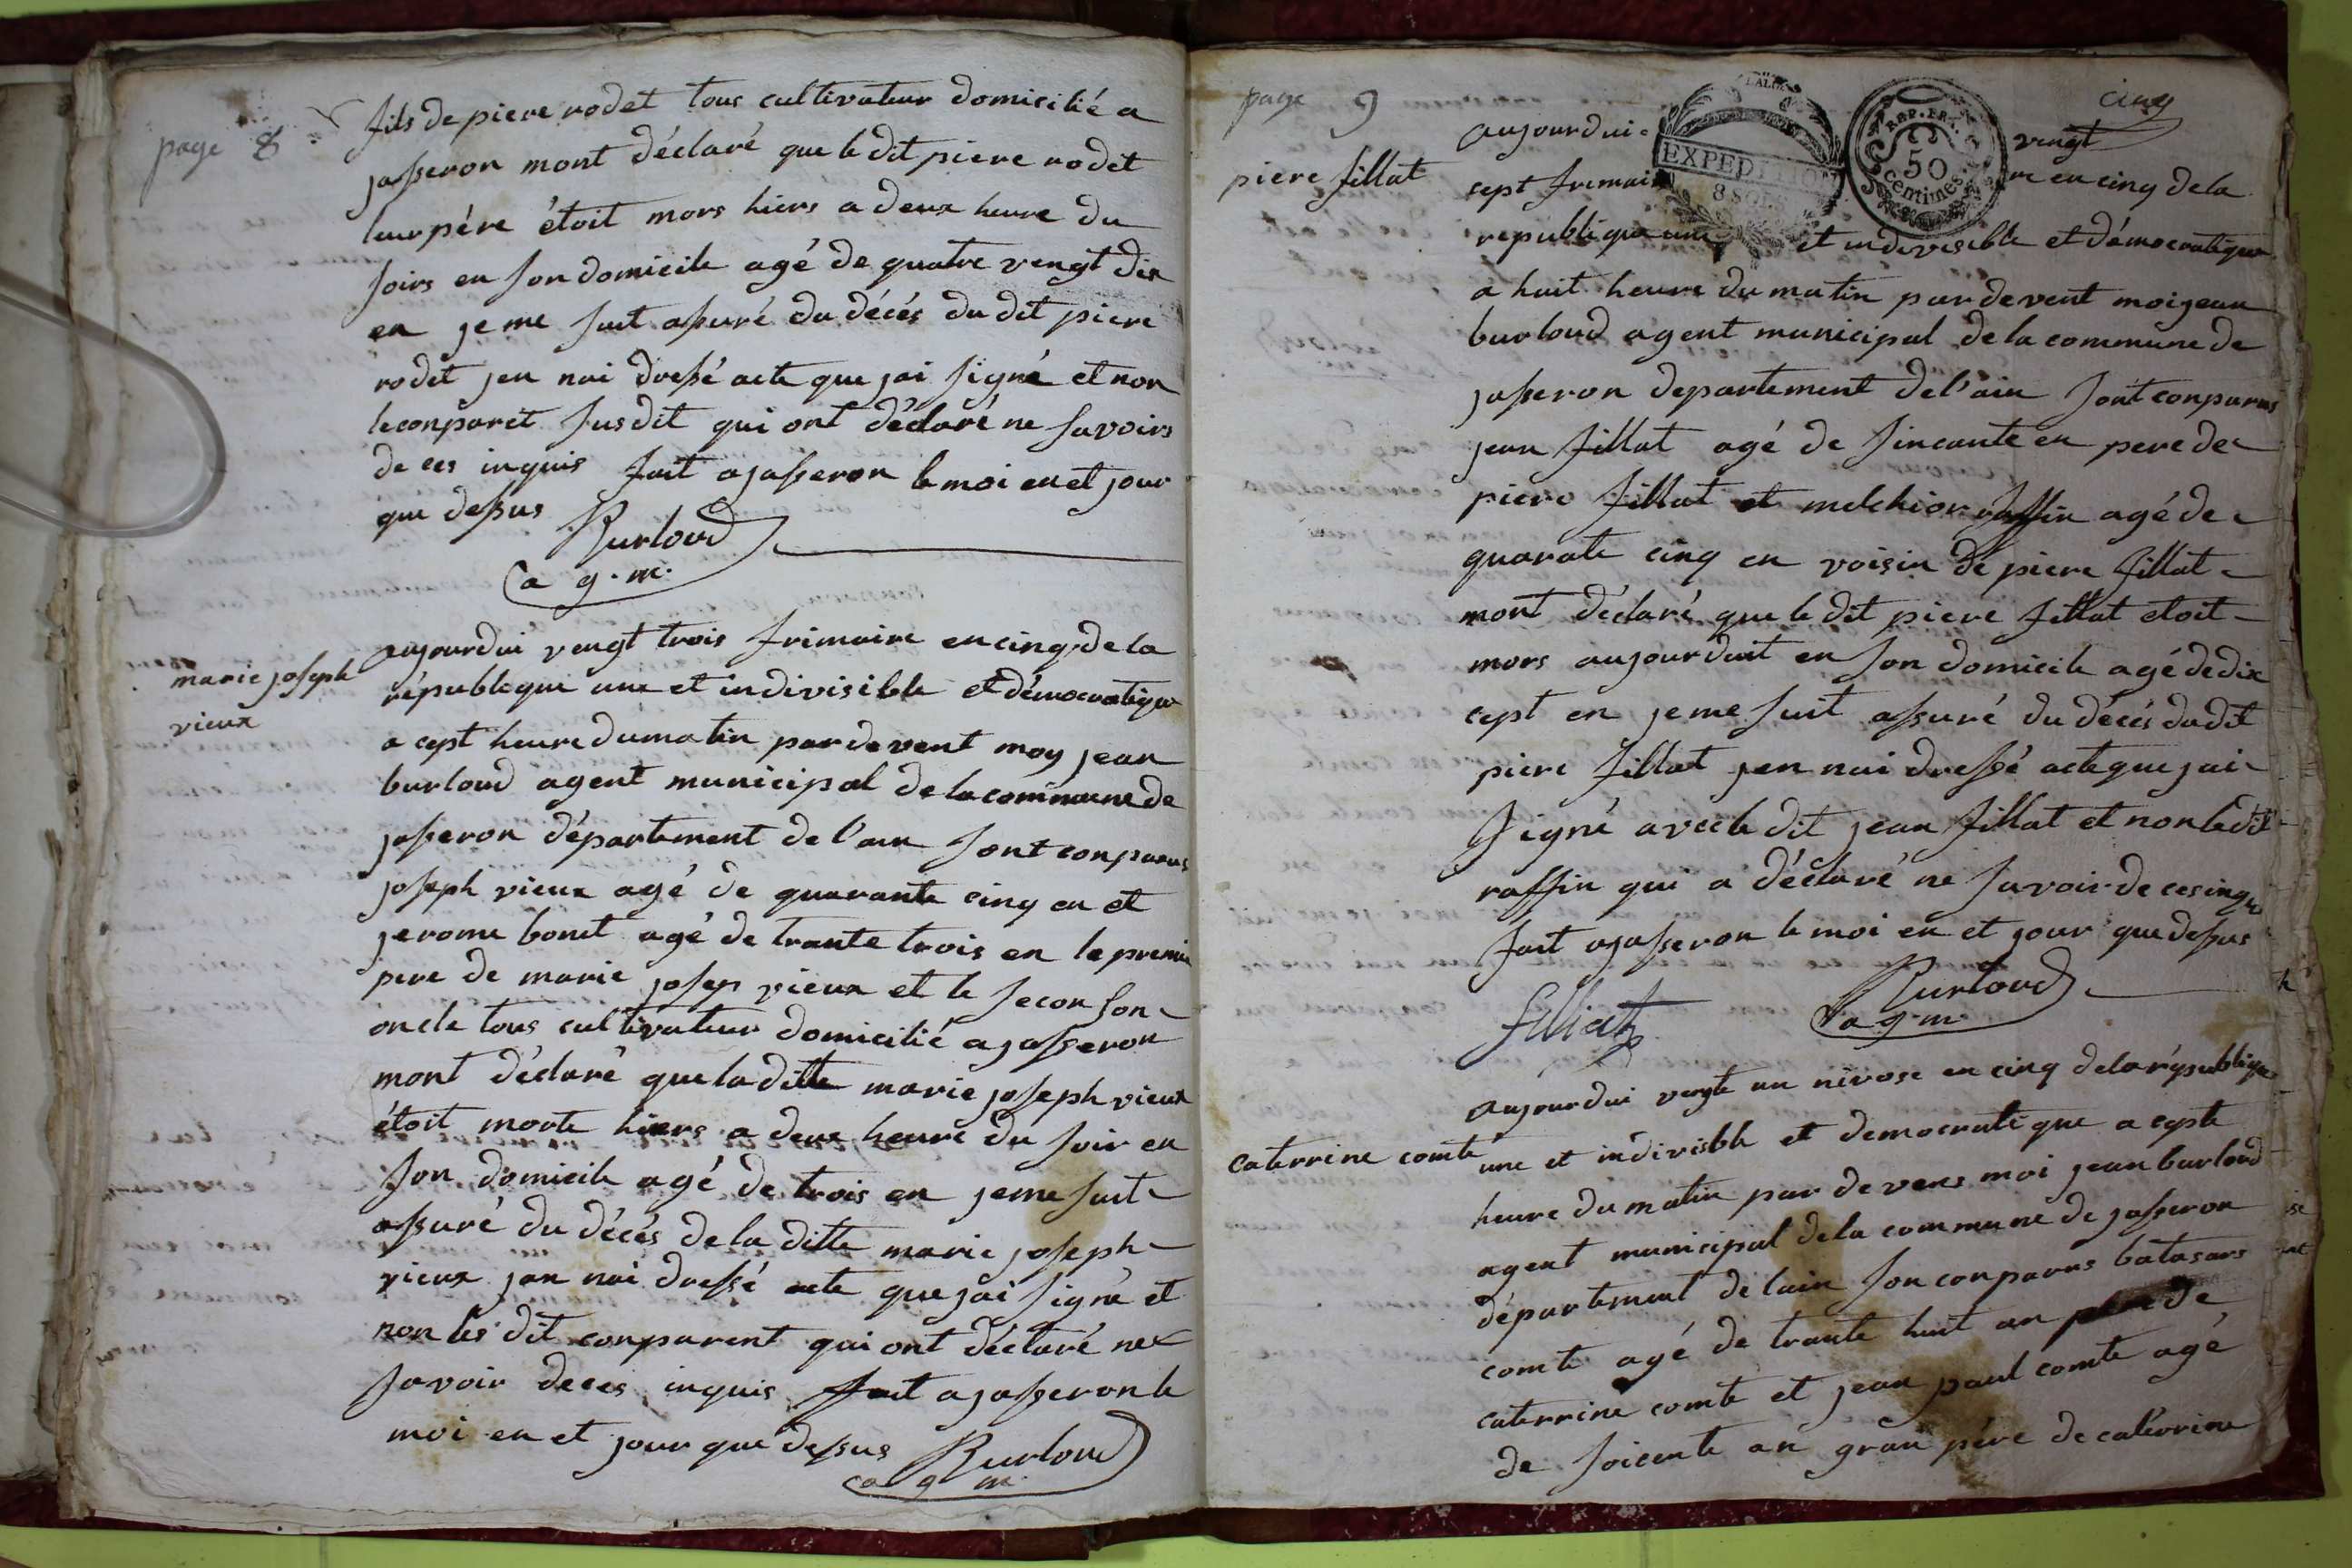 page 8
fils de piere rodet tous cultivateur domicilié a
jasseron mont déclaré que le dit piere rodet
leur pére étoit mors hiers a deux heure du
soirs en son domicile agé de quatre vengt dix
en je me suit assuré du décés du dit piere
rodet jen nai dressé acte que jai signé et non
le conparet susdit qui ont déclaré ne savoirs
de ces inquis fait a jasseron le moi en et jour
que dessus
Burloud
a g. m.
marie joseph
vieux
aujourdui vengt trois frimaire en cinq de la
républeque une et indivisible et démocratique
a cept heure du matin par devent moy jean
burloud agent municipal de la commune de
jasseron département de l'ain sont conparus
joseph vieux agé de quarante cinq en et
jerome bonet agé de trante trois en le premie
pere de marie josep vieux et le secon son
oncle tous cultivateur domicilié a jasseron
mont déclaré que la ditte marie joseph vieux
étoit morte hiers a deux heure du soir en
son domicile agé de trois en jeme suit
assuré du décés de la ditte marie joseph
vieux jan nai dressé acte que jai signé et
non les dit conparent qui ont déclaré ne
savoir de ces inquis fait a jasseron le
moi en et jour que dessus
Burloud
a g m.
page 9
cinq
EXPEDITION
8 SOLS
REP. FRA.
50
centimes
piere fillat
aujourdui vengt
cept frimaire en cinq de la
republique une et indevisible et démocratique
a huit heure du matin par devent moi jean
burloud agent municipal de la commune de
jasseron departement de l'ain sont conparus
jean fillat agé de sincante en pere de
piere fillat et melchior raffin agé de
quarate cinq en voisin de piere fillat
mont déclaré que le dit piere fillat etoit
mors aujourduit en son domicile agé de dix
cept en je me suit assuré du décés du dit
piere fillat jen nai dressé acte que jai
signé avec le dit jean fillat et non le dit
raffin qui a déclaré ne savoir de ces inqu
fait a jasseron le moi en et jour que dessus
filliat
Burloud
a g m.
caterrine comte
aujourdui vengte un nivose en cinq de la république
une et indivisble et democratique a cepte
heure du matin par devens moi jean burloud
agent municipal de la commune de jasseron
département de lain son conparus batasars
comte agé de trante huit an de
caterrine comte et jean paul comte agé
de soicente an gran pére de caterrine